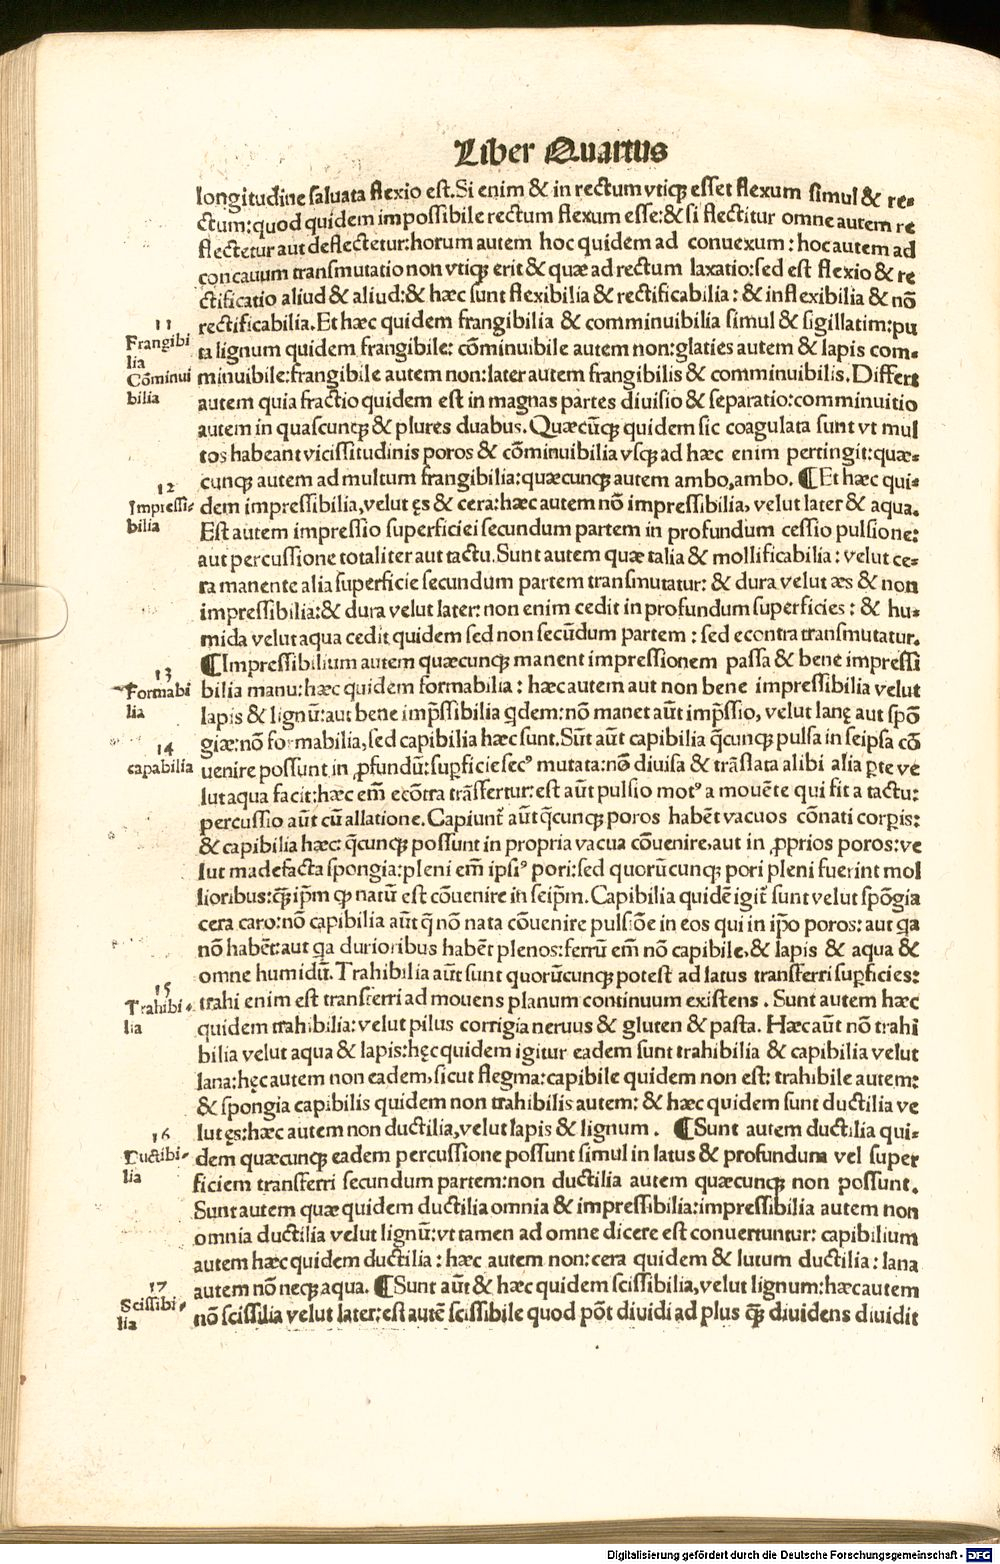 Liber Quartus
longitudine saluata flexio est. Si enim & in rectum vtiqꝫ esset flexum simul & re-
ctum: quod quidem impossibile rectum flexum esse: & si flectitur omne autem re
flectetur aut deflectetur: horum autem hoc quidem ad conuexum: hoc autem ad
concauum transmutatio non vtiqꝫ erit & quæ ad rectum laxatio: sed est flexio & re
ctificatio aliud & aliud: & hæc sunt flexibilia & rectificabilia: & inflexibilia & nō
11
rectificabilia. Et hæc quidem frangibilia & comminuibilia simul & sigillatim: pu
Frangibi
lia
ta lignum quidem frangibile: cōminuibile autem non: glaties autem & lapis com-
Cōminui
bilia
minuibile: frangibile autem non: later autem frangibilis & comminuibilis. Differt
autem quia fractio quidem est in magnas partes diuisio & separatio: comminuitio
autem in quascunqꝫ & plures duabus. Quæcūqꝫ quidem sic coagulata sunt vt mul
tos habeant vicissitudinis poros & cōminuibilia vsqꝫ ad hæc enim pertingit: quæ-
cunqꝫ autem ad multum frangibilia: quæcunqꝫ autem ambo, ambo. ¶ Et hæc qui-
12
Impressi-
bilia
dem impressibilia, velut ęs & cera: hæc autem nō impressibilia, velut later & aqua.
Est autem impressio superficiei secundum partem in profundum cessio pulsione:
aut percussione totaliter aut tactu. Sunt autem quæ talia & mollificabilia: velut ce-
ra manente alia superficie secundum partem transmutatur: & dura velut æs & non
impressibilia: & dura velut later: non enim cedit in profundum superficies: & hu-
mida velut aqua cedit quidem sed non secūdum partem: sed econtra transmutatur.
¶ Impressibilium autem quæcunqꝫ manent impressionem passa & bene impressi
13
Formabi
lia
bilia manu: hæc quidem formabilia: hæc autem aut non bene impressibilia velut
lapis & lignū: aut bene imp̄ssibilia qdem: nō manet aūt imp̄ssio, velut lanę aut spō
giæ: nō formabilia, sed capibilia hæc sunt. Sūt aūt capibilia q̄cunqꝫ pulsa in seipsa cō
14
capabilia
uenire possunt in ꝓfundū: suꝑficie secꝰ mutata: nō diuisa & trāslata alibi alia ꝑte ve
lut aqua facit: hæc em̄ ecōtra trāsfertur: est aūt pulsio motꝰ a mouēte qui fit a tactu:
percussio aūt cū allatione. Capiunt̄ aūt q̄cunqꝫ poros habēt vacuos cōnati corꝑis:
& capibilia hæc: q̄cunqꝫ possunt in propria vacua cōuenire, aut in ꝓprios poros: ve
lut madefacta spongia: pleni em̄ ipsiꝰ pori: sed quorūcunqꝫ pori pleni fuerint mol
lioribus: q̄ꝫ ip̄m qꝫ natū est cōuenire in seip̄m. Capibilia quidē igit̄ sunt velut spōgia
cera caro: nō capibilia aūt q̄ nō nata cōuenire pulsiōe in eos qui in ip̄o poros: aut qa
nō habēt: aut qa durioribus habēt plenos: ferrū em̄ nō capibile, & lapis & aqua &
omne humidū. Trahibilia aūt sunt quorūcunqꝫ potest ad latus transferri suꝑficies:
15
Trahibi-
lia
trahi enim est transferri ad mouens planum continuum existens. Sunt autem hæc
quidem trahibilia: velut pilus corrigia neruus & gluten & pasta. Hæc aūt nō trahi
bilia velut aqua & lapis: hęc quidem igitur eadem sunt trahibilia & capibilia velut
lana: hęc autem non eadem, sicut flegma: capibile quidem non est: trahibile autem:
& spongia capibilis quidem non trahibilis autem: & hæc quidem sunt ductilia ve
lut ęs: hæc autem non ductilia, velut lapis & lignum. ¶ Sunt autem ductilia qui-
16
Ductibi-
lia
dem quæcunqꝫ eadem percussione possunt simul in latus & profundum vel super
ficiem transferri secundum partem: non ductilia autem quæcunqꝫ non possunt.
Sunt autem quæ quidem ductilia omnia & impressibilia: impressibilia autem non
omnia ductilia velut lignū: vt tamen ad omne dicere est conuertuntur: capibilium
autem hæc quidem ductilia: hæc autem non: cera quidem & lutum ductilia: lana
autem nō neqꝫ aqua. ¶ Sunt aūt & hæc quidem scissibilia, velut lignum: hæc autem
17
Scissibi-
lia
nō scissilia velut later: est autē scissibile quod pōt diuidi ad plus q̄ꝫ diuidens diuidit
Digitalisierung gefördert durch die Deutsche Forschungsgemeinschaft - DFG